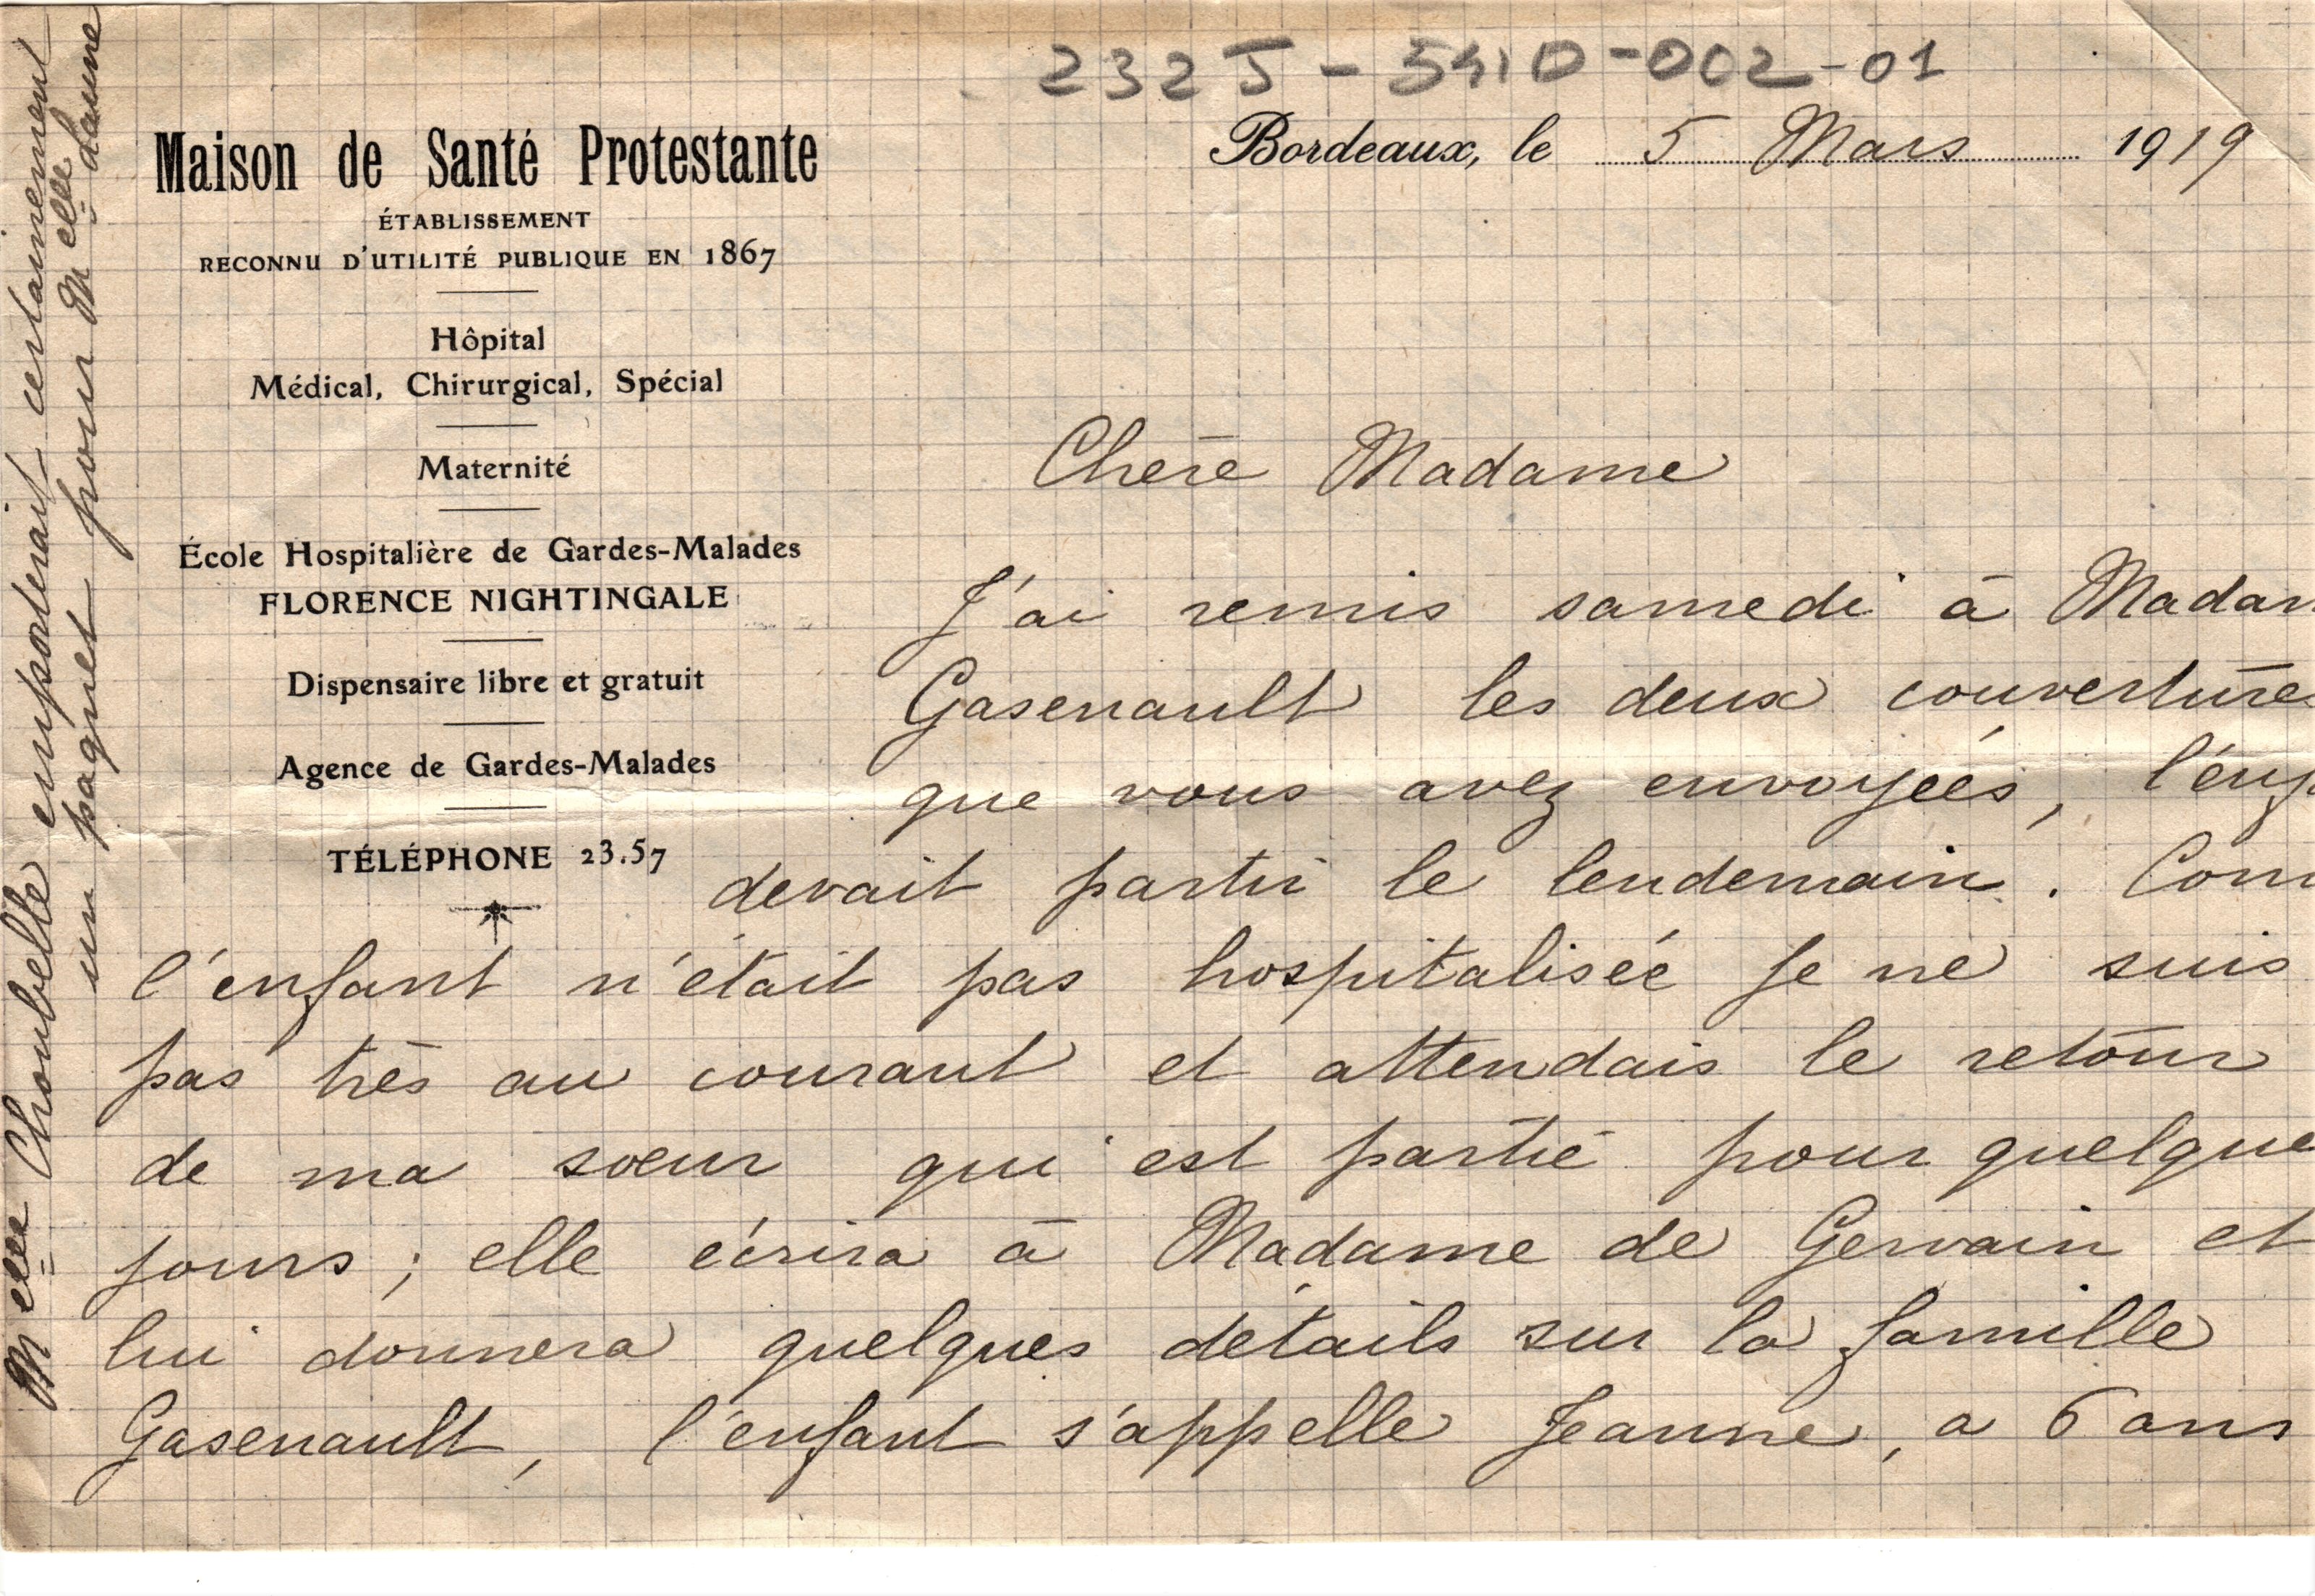 232 J - 5410 - 002 - 01
Maison de Santé Protestante
ÉTABLISSEMENT
RECONNU D'UTILITÉ PUBLIQUE EN 1867
Hôpital
Médical, Chirurgical, Spécial
Maternité
École Hospitalière de Gardes-Malades
FLORENCE NIGHTINGALE
Dispensaire libre et gratuit
Agence de Gardes-Malades
TÉLÉPHONE 23.57
Bordeaux, le 5 Mars 1919
Chère Madame
J'ai remis samedi à Madam
Gasenault les deux couvertures
que vous avez envoyées, l'enf
devait partir le lendemain. Com
l'enfant n'était pas hospitalisée je ne suis
pas très au courant et attendais le retour
de ma soeur qui est partie pour quelque
jours ; elle écrira à Madame de Gervain et
lui donnera quelques détails sur la famille
Gasenault, l'enfant s'appelle Jeanne, a 6 ans
Melle Choubelle emporterait certainement
un paquet pour Melle